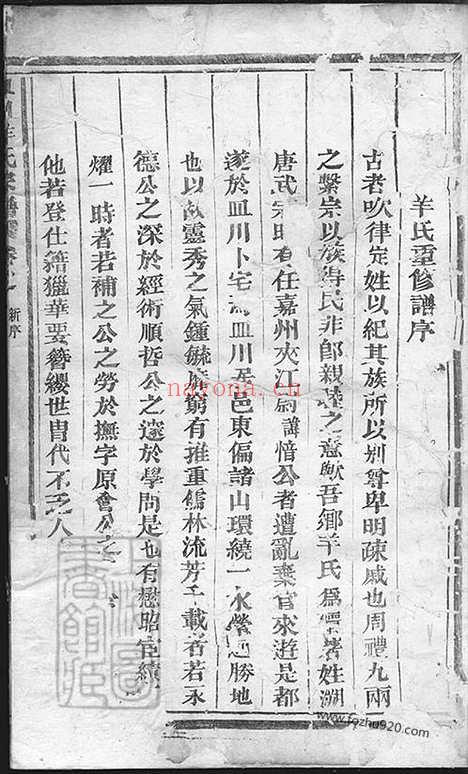 羊氏重修譜序
古者吹律定姓以紀其族所以别尊卑明疎戚也周禮九兩
之繫宗以族得民非卽親睦之意歟吾鄉羊氏爲雲著姓溯
唐武宗時有任嘉州夾江尉諱愔公者遭亂棄官來遊是都
遂於皿川卜宅焉皿川居邑東偏諸山環繞一水縈廻勝地
也以故靈秀之氣鍾毓靡窮有推重儒林流芳千載者若永
德公之深於經術順哲公之邃於學問是也有懋昭宦績
燿一時者若補之公之勞於撫字原會公之
他若登仕籍獵華要簪纓世冑代不乏人
氏宗譜 新序
nayona.cn
www.fozhu920.com